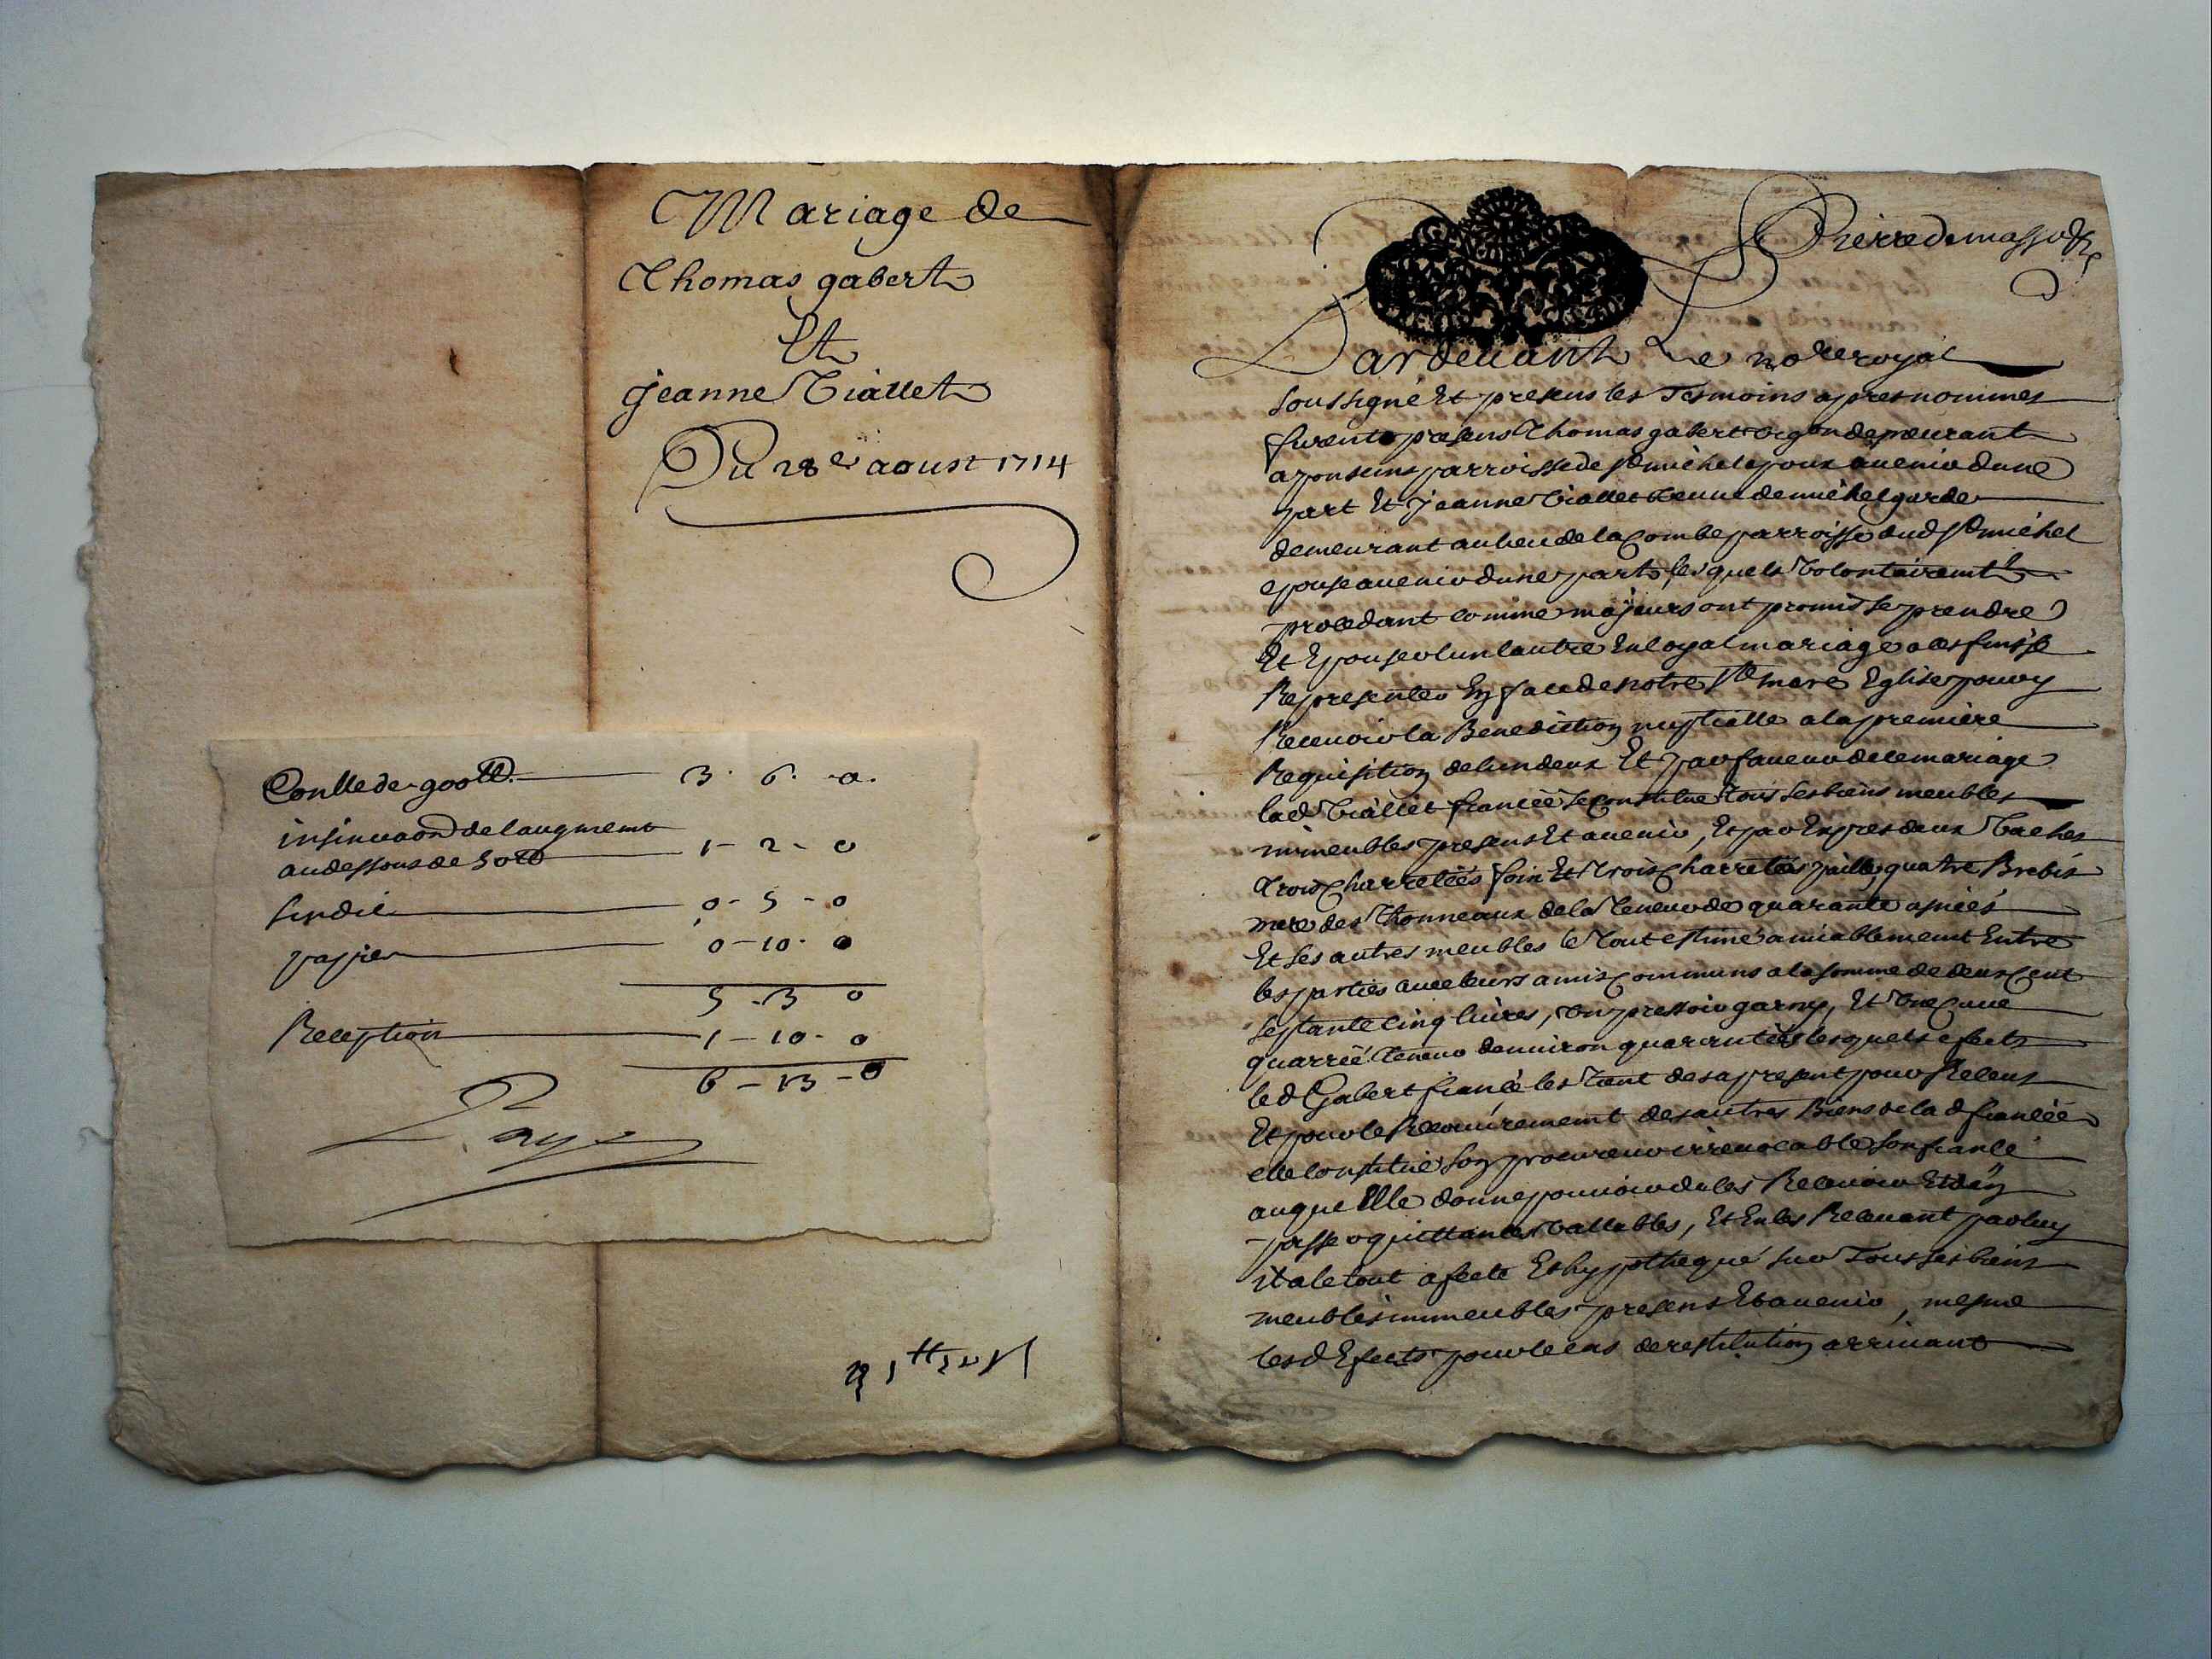 Mariage de
Thomas gabert
Et
jeanne Viallet
Du 28e aoust 1714
Conlle de 900tt. 3. 6. 0.
insinuaon de laugment
au dessous de 50tt 1 - 2 - 0
sindic 0 - 5 - 0
papier 0 - 10 - 0
5 - 3 0
Reception 1 - 10 - 0
6 - 13 - 0
Paye
Pierre demasso
Pardeuant Le nore royal
soussigné Et presens les Tesmoins apres nommes
furent presens Thomas gabert demeurant
a parroisse de st michel epoux auenir dune
part Et Jeanne Viallet veuue de michel garde
demeurant au lieu de la Combe parroisse dud st michel
epouse auenir dune part, lesquels Volontairemt
procedant comme majeurs ont promis se prendre
Et Epouser lun lautre En loyal mariage a ces fins se
Representer En face de notre ste mere Eglise pour y
Receuoir la Benediction nuptialle a la premiere
Requisition de lun deux Et par faueur de ce mariage
lad Viallet fiancée se constitue tous ses biens meubles
immeubles presens Et auenir, Et par Expres deux Vaches
Trois Charretées foin Et trois Charretées paille, quatre Brebis
mere des Thonneaux de la Teneur de quarante asnées
Et ses autres meubles le Tout estimé amiablement Entre
les parties auec leurs amis Communs a la somme de deux Cent
septante Cinq liures, Un pressoir garny, Et Une Cuue
quarrée Teneur denuiron quarante lesquels efects
led Gabert fiancé les tient des a present pour Receus
Et pour le Recouurement des autres Biens de lad fiancée
elle constitue son procureur irreuocable son fiancé
auquel Elle donne pouuoir de les Receuoir Et den
passer quittances Vallables, Et En les Receuant par luy
il a le tout afecté Et hypothequé sur Tous ses biens
meubles immeubles presens Et auenir, mesme
lesd Efects pour le cas de restitution arriuant